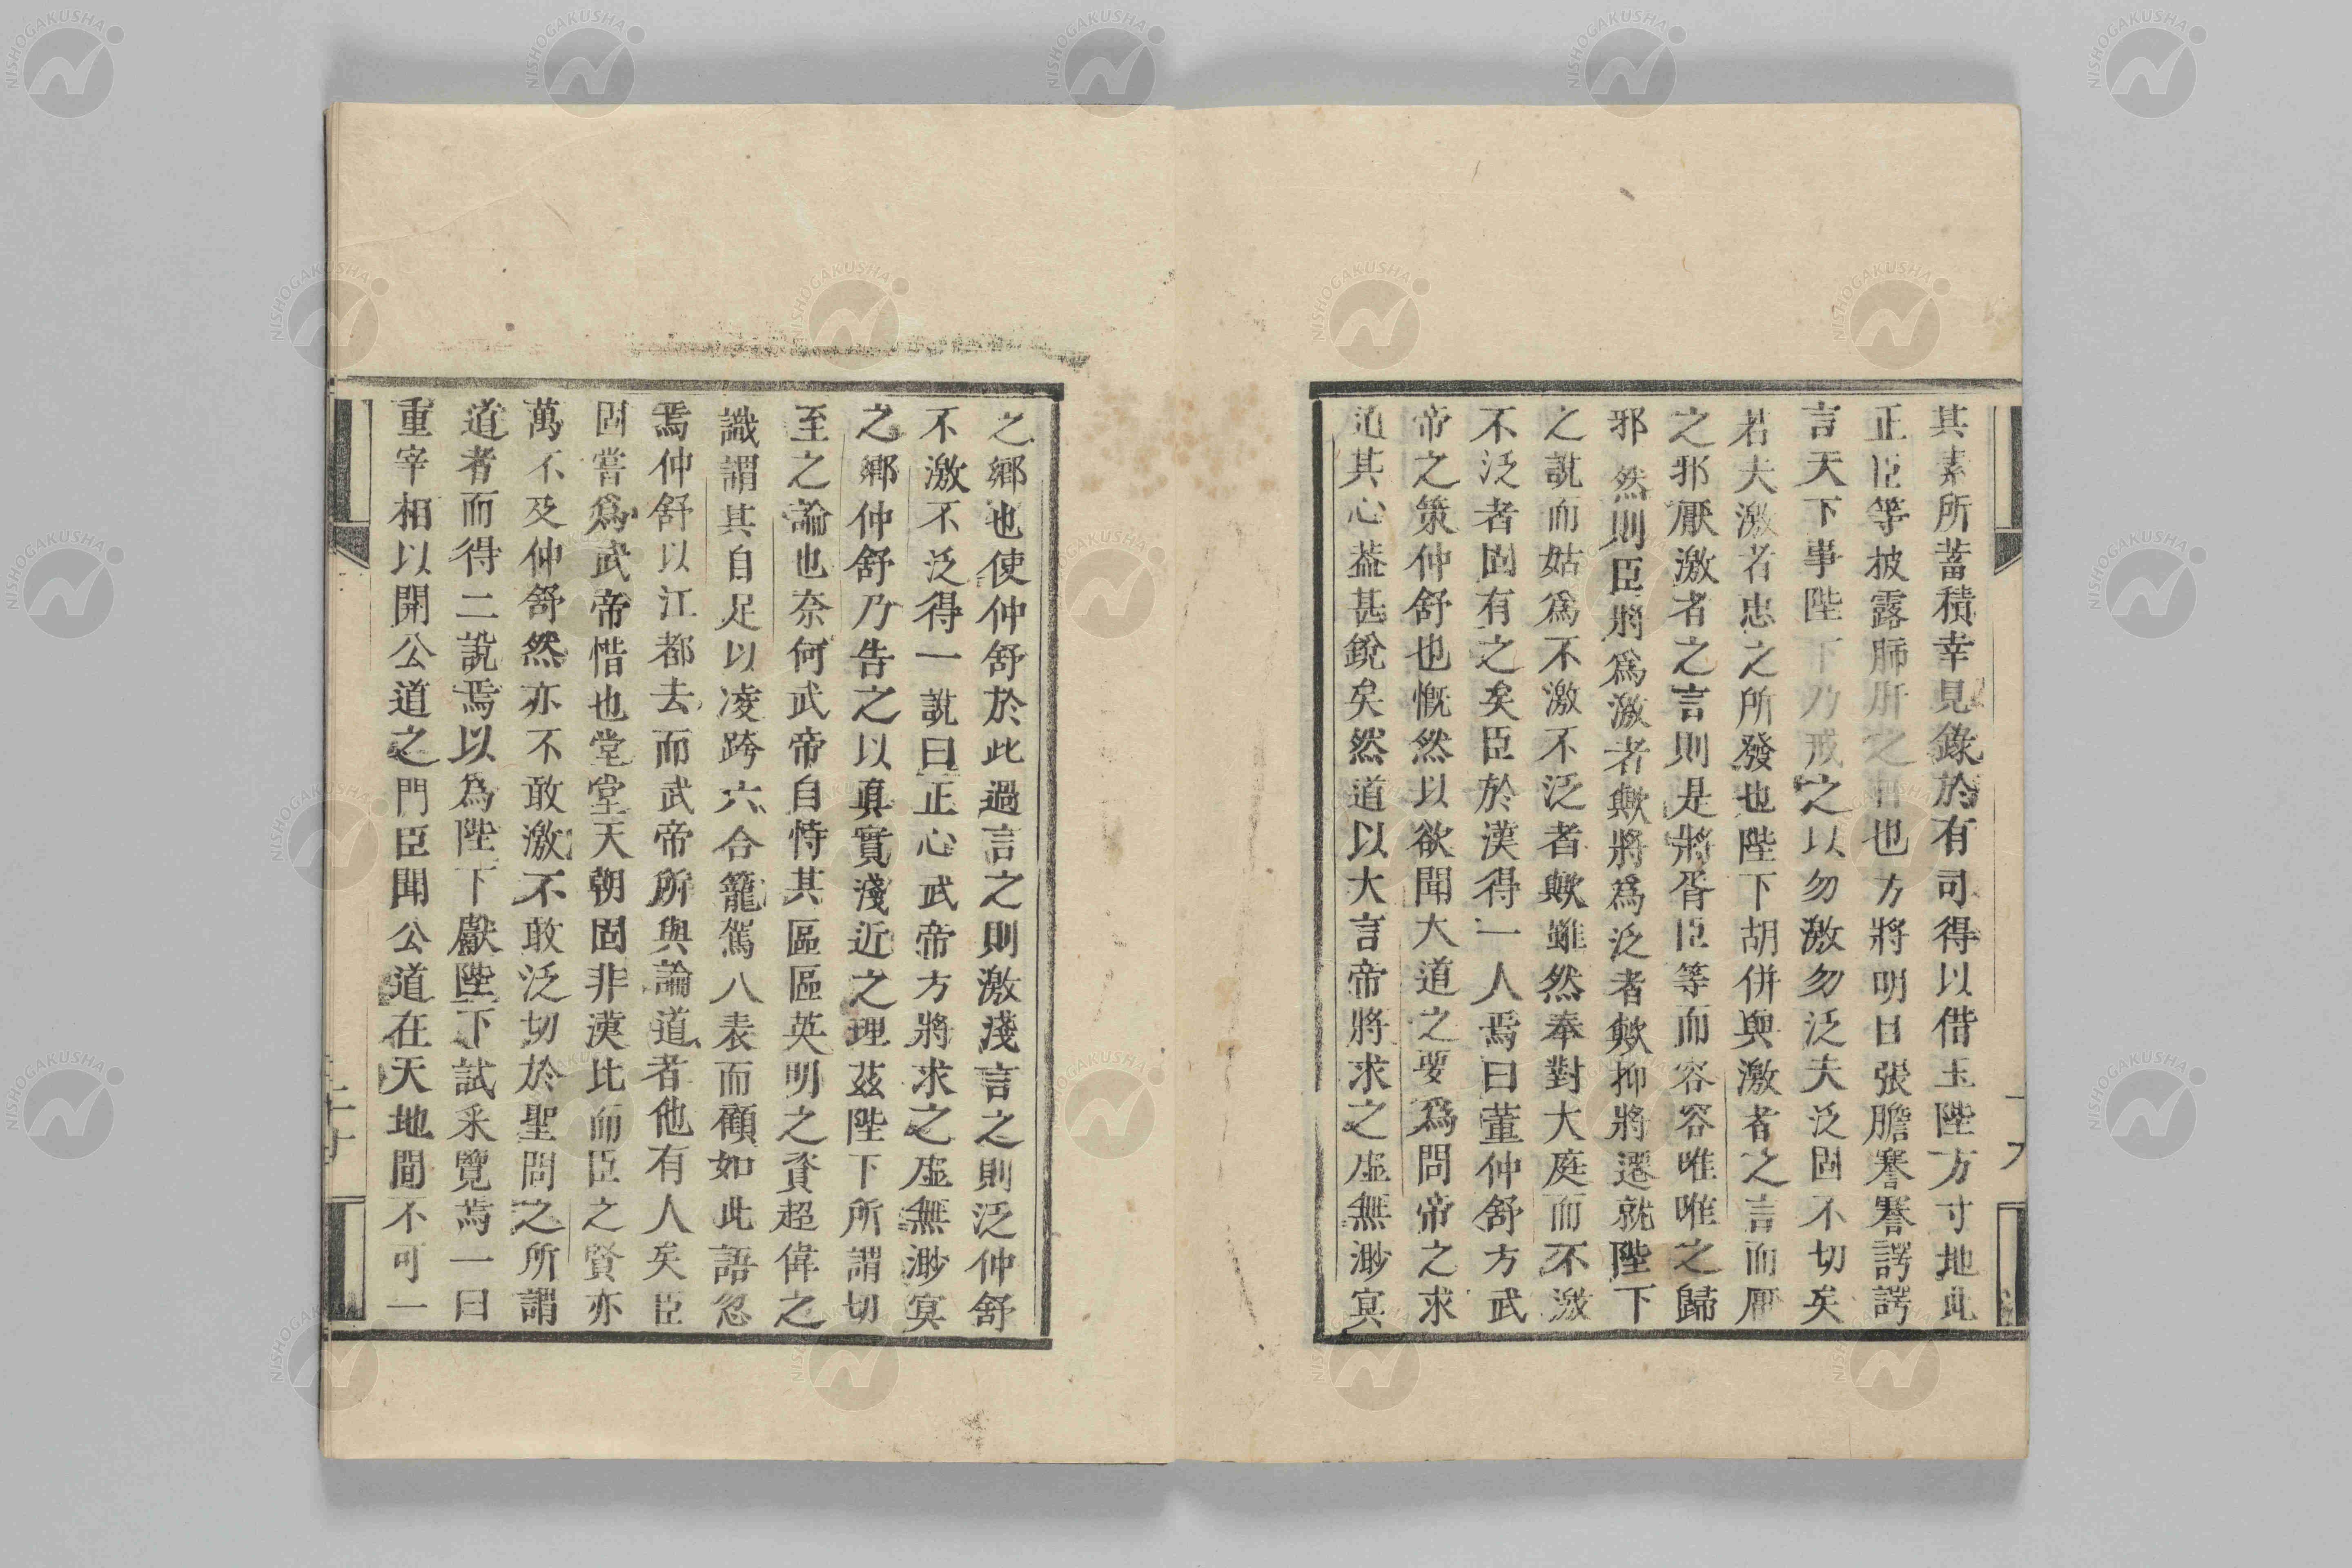 其素所蓄積幸見錄於有司得以借玉陛方寸地此
正臣等披露肺肝之日也方將明目張膽謇謇諤諤
言天下事陛下乃戒之以勿激勿泛夫泛固不切矣
若夫激者忠之所發也陛下胡併與激者之言而厭
之邪厭激者之言則是將胥臣等而容容唯唯之歸
邪然則臣將爲激者歟將爲泛者歟抑將遷就陛下
之說而姑爲不激不泛者歟雖然奉對大庭而不激
不泛者固有之矣臣於漢得一人焉曰董仲舒方武
帝之策仲舒也慨然以欲聞大道之要爲問帝之求
道其心葢甚銳矣然道以大言帝將求之虛無渺冥
之鄉也使仲舒於此過言之則激淺言之則泛仲舒
不激不泛得一說曰正心武帝方將求之虛無渺冥
之鄉仲舒乃告之以眞實淺近之理茲陛下所謂切
至之論也奈何武帝自恃其區區英明之資超偉之
識謂其自足以凌跨六合籠駕八表而顧如此語忽
焉仲舒以江都去而武帝所與論道者他有人矣臣
固嘗爲武帝惜也堂堂天朝固非漢比而臣之賢亦
萬不及仲舒然亦不敢激不敢泛切於聖問之所謂
道者而得二說焉以爲陛下獻陛下試采覽焉一曰
重宰相以開公道之門臣聞公道在天地間不可一
NISHOGAKUSHA